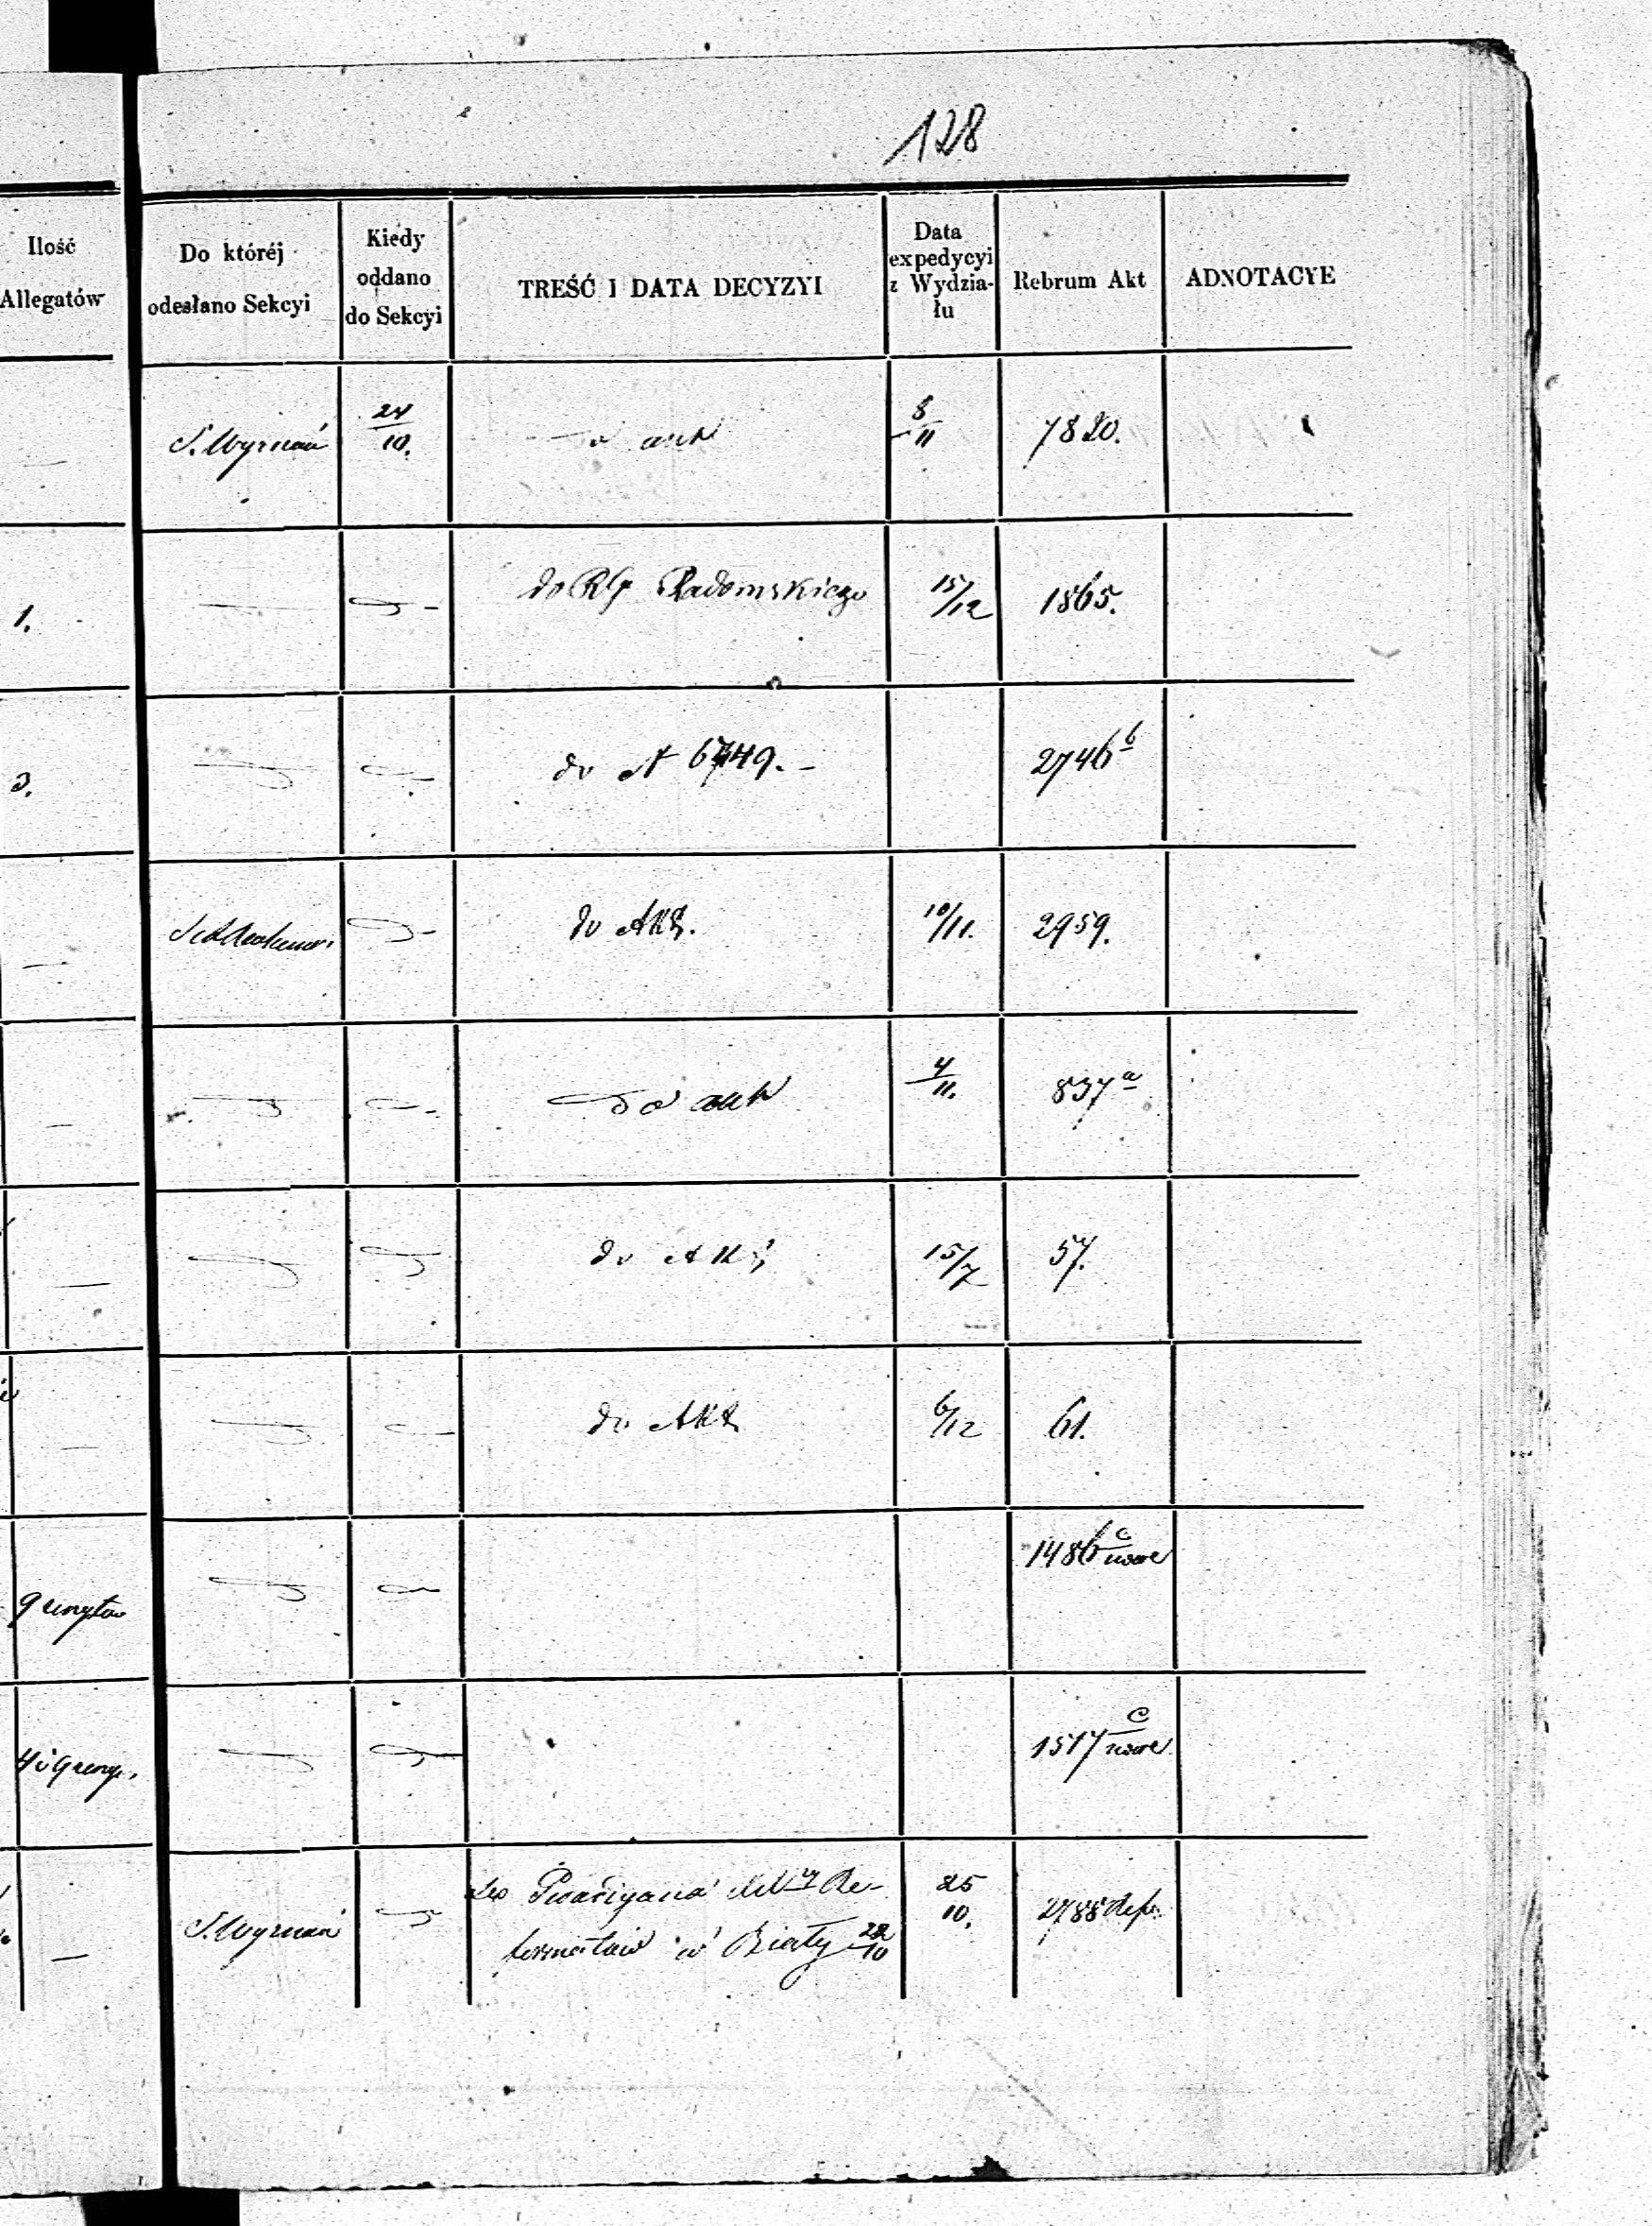 128
Ilość Allegatów | Do któréj odesłano Sekcyi | Kiedy oddano do Sekcyi | TREŚĆ I DATA DECYZYI | Data expedycyi z Wydzia-łu | Rebrum Akt | ADNOTACYE
— | S. Wyznań | 24/10. | do akt | 8/11 | 7820.
1. | — | — | do RG Radomskiego | 15/12 | 1865.
3. | — | — | do N 6749. – | 2746 b
— | — | do Akt. | 10/11. | 2959.
— | — | — | do akt | 4/11. | 837 a
— | — | — | do Akt | 15/7 | 57.
— | — | — | do Akt | 6/12 | 61.
9 | — | — | 1486 c
4 i 9 | — | — | 1517 c
— | S. Wyznań | — | do Gwardyana Re-
formatów w Biały 22/10 | 25/10. | 2788